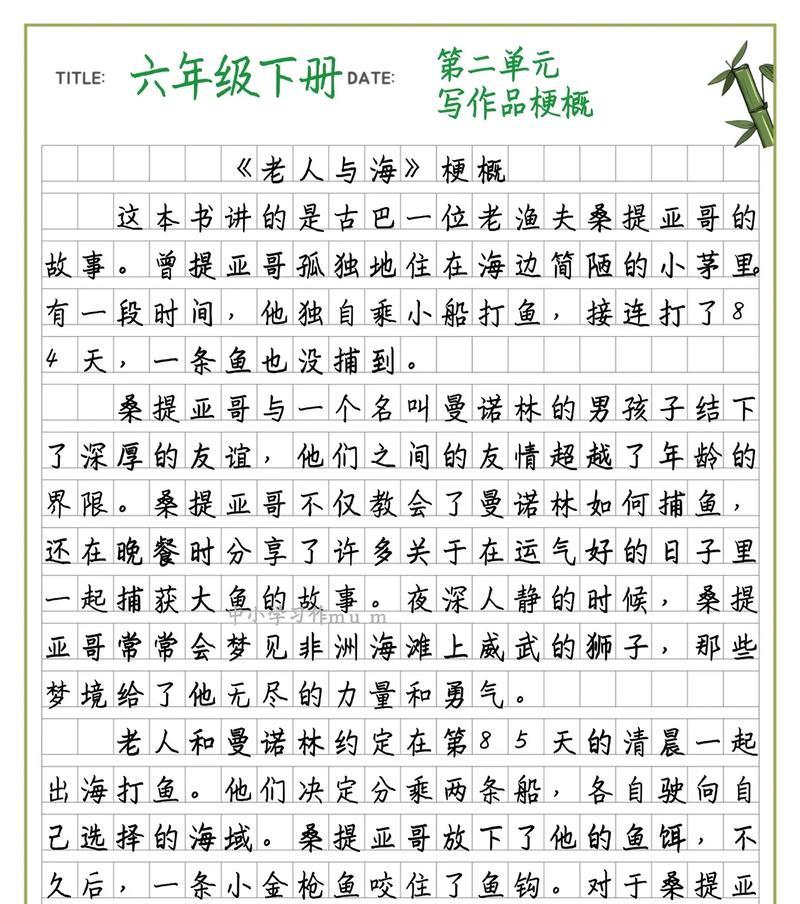 TITLE: 六年级下册 DATE: 第二单元
写作品梗概
《老人与海》梗概
这本书讲的是古巴一位老渔夫桑提亚哥的
故事。曾提亚哥孤独地住在海边简陋的小茅里。
有一段时间，他独自乘小船打鱼，接连打了8
4天，一条鱼也没捕到。
桑提亚哥与一个名叫曼诺林的男孩子结下
了深厚的友谊，他们之间的友情超越了年龄的
界限。桑提亚哥不仅教会了曼诺林如何捕鱼，
还在晚餐时分享了许多关于在运气好的日子里
一起捕获大鱼的故事。夜深人静的时候，桑提
中小学习作mum
亚哥常常会梦见非洲海滩上威武的狮子，那些
梦境给了他无尽的力量和勇气。
老人和曼诺林约定在第85天的清晨一起
出海打鱼。他们决定分乘两条船，各自驶向自
己选择的海域。桑提亚哥放下了他的鱼饵，不
久后，一条小金枪鱼咬住了鱼钩。对于桑提亚